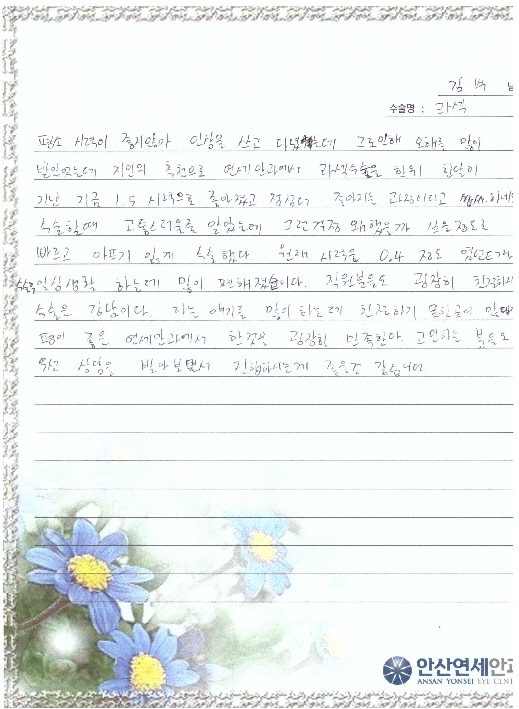 수술명 : 라식
평소 시력이 좋지않아 인상을 쓰고 다녔는데 그로인해 오해를 많이
받았었는데 지인의 추천으로 연세안과에서 라식수술을 한뒤 한달이
지난 지금 1.5 시력으로 좋아졌고 점점더 좋아지는 과정이라고
수술할때 고통스러울줄 알았는데 그런걱정 왜했을까 싶을정도로
빠르고 아프지 않게 수술했다. 원래 시력은 0.4 정도 였는데
수술후 일상생활 하는데 많이 편해졌습니다. 직원분들도 굉장히 친절하시
수술은 강남이다. 라는 얘기를 많이 하는데 친절하지 못한곳이
평이 좋은 연세안과에서 한것은 굉장히 만족한다. 고민하는 분들도
우선 상담을 받아보면서 진행하시는게 좋을것 같습니다
안산연세안과
ANSAN YONSEI EYE CENT